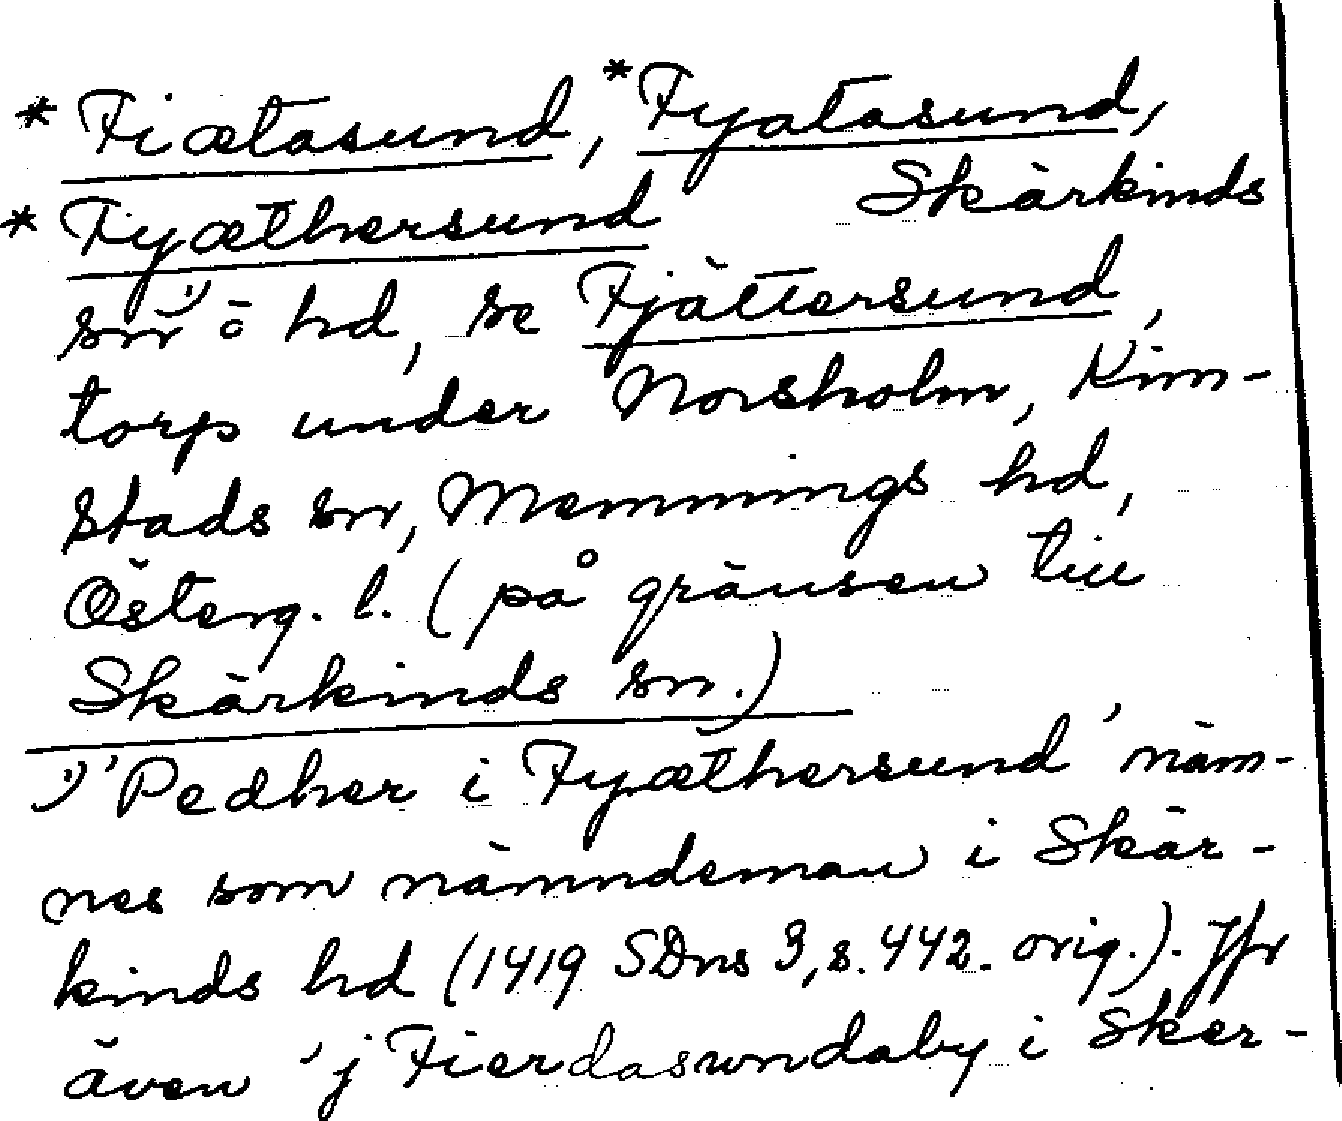 *Fiætasund, *Fyatasund,
*Fyæthersund Skärkinds
sn¹⁾ o hd, se Fjättersund,
torp under Norsholm, Kim-
stads sn, Memmings hd,
Österg. l. (på gränsen till
Skärkinds sn.)
¹⁾'Pedher i Fyæthersund' näm-
nes som nämndeman i Skär-
kinds hd (1419 SDns 3, s. 442. orig.). Jfr
även 'j Fierdasundaby i Sker-